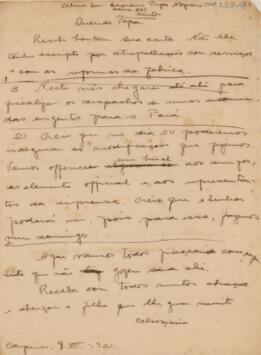 Querido Papae
Recebi hontem sua carta. Não lhe
tenho escripto por atrapalhações com serviços
e com as reformas da fabrica.
3 Neste mês chegarei até ahi para
fiscalizar os despachos de umas
das urgentes para o Pará
2. Creio que no dia 20 poderemos
inaugurar as modificações que fizemos.
Vamos offerecer aos amigos,
e elemento official e aos representan-
tes da imprensa. Creio que o senhor
poderá vir, pois para isso, faremos
num domingo
Aqui vamos todos passando com
que não sea ahi.
Receba com todos muitos abraços
e abenção o filho que lhe quer muito
Campinas, 9. III. 921.